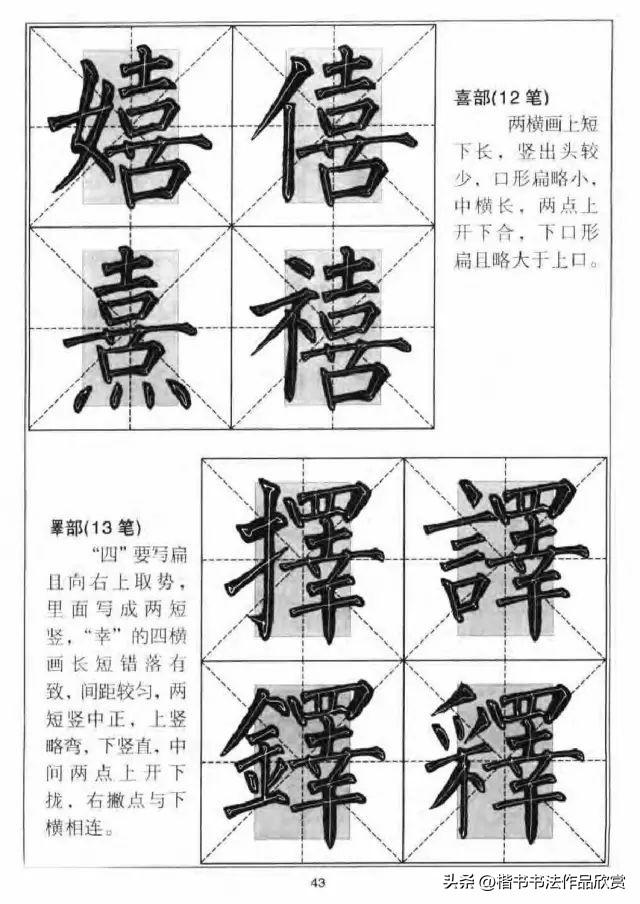 嬉 僖
熹 禧
喜部(12 笔)
两横画上短
下长，竖出头较
少，口形扁略小，
中横长，两点上
开下合，下口形
扁且略大于上口。
睪部(13 笔)
“四”要写扁
且向右上取势，
里面写成两短
竖，“幸”的四横
画长短错落有
致，间距较匀，两
短竖中正，上竖
略弯，下竖直，中
间两点上开下
拢，右撇点与下
横相连。
擇 譯
鐸 釋
43
头条 @楷书书法作品欣赏